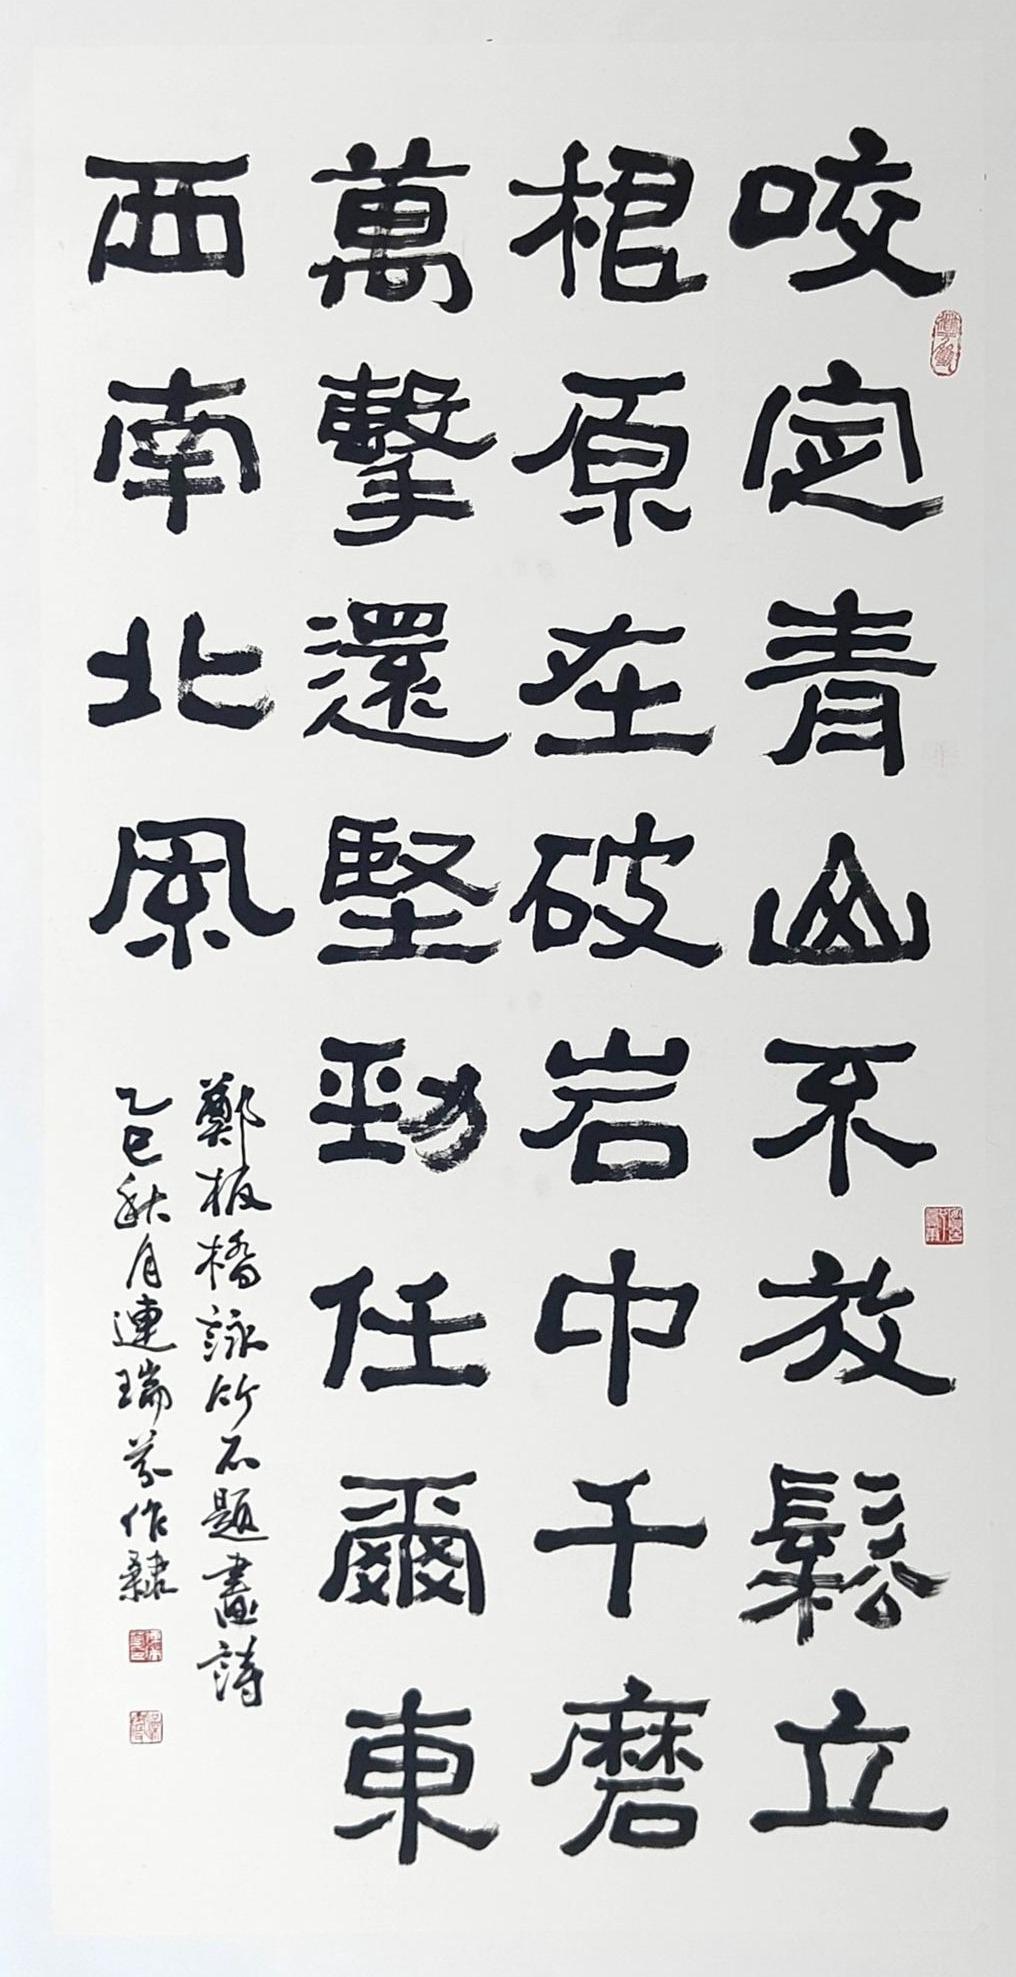 咬定青山不放鬆立
根原在破岩中千磨
萬擊還堅勁任爾東
西南北風
鄭板橋詠竹石題畫詩
乙巳秋月連瑞芬作隸